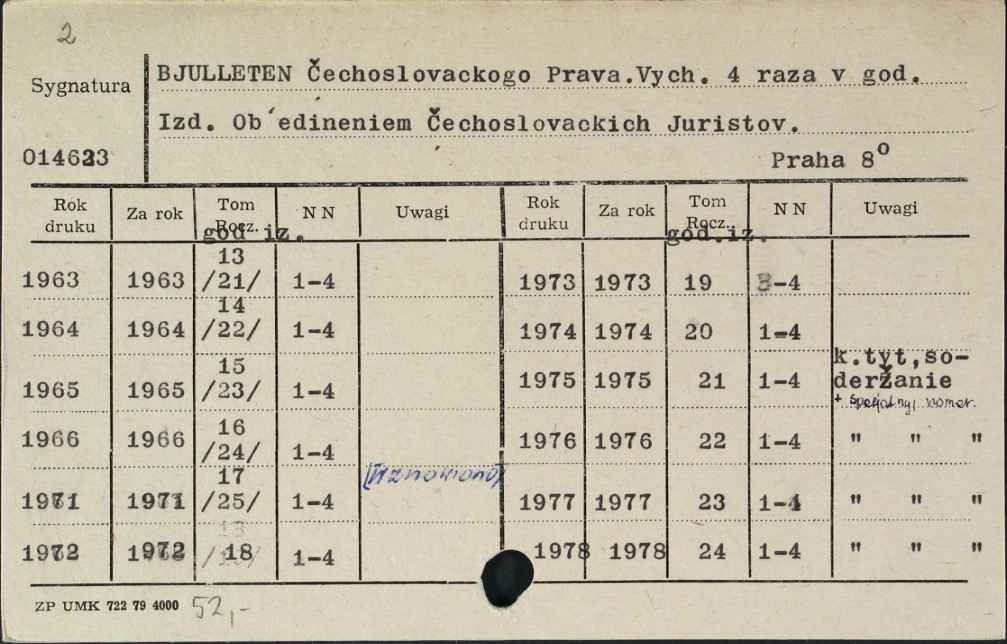 2
Sygnatura
BJULLETEN Čechoslovackogo Prava.Vych. 4 raza v god.
Izd. Ob´edineniem Čechoslovackich Juristov.
014623
Praha 8°
Rok druku Za rok Tom Rocz. N N Uwagi Rok druku Za rok Tom Rocz. N N Uwagi
god iz. god.iz.
1963 1963 13 /21/ 1-4 1973 1973 19 3-4
1964 1964 14 /22/ 1-4 1974 1974 20 1-4
1965 1965 15 /23/ 1-4 1975 1975 21 1-4 k.tyt,so-
deržanie
+ specjalnyj nomer.
1966 1966 16 /24/ 1-4 1976 1976 22 1-4 " " "
(Wznowiono)
1971 1971 17 /25/ 1-4 1977 1977 23 1-4 " " "
1972 1972 18 1-4 1978 1978 24 1-4 " " "
ZP UMK 722 79 4000 52,-